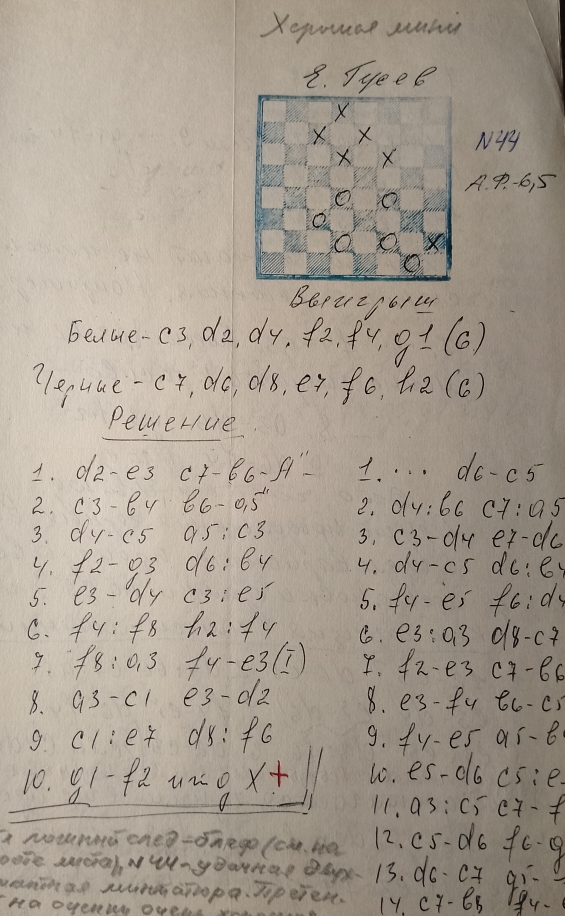 Хорошая мини
Е. Гусев
N44
А.Ф.-6,5
Выигрыш
Белые - c3, d2, d4, f2, f4, g1 (6)
Черные - c7, d6, d8, e7, f6, h2 (6)
Решение
1. d2-e3 c7-b6-A"-
2. c3-b4 b6-a5"
3. d4-c5 a5:c3
4. f2-g3 d6:b4
5. e3-d4 c3:e5
6. f4:f8 h2:f4
7. f8:a3 f4-e3(I)
8. a3-c1 e3-d2
9. c1:e7 d8:f6
10. g1-f2 и кд X+
1. ... d6-c5
2. d4:b6 c7:a5
3. c3-d4 e7-d6
4. d4-c5 d6:b4
5. f4-e5 f6:d4
6. e3:a3 d8-c7
7. f2-e3 c7-b6
8. e3-f4 b6-c5
9. f4-e5 a5-b
10. e5-d6 c5:e
11. a3:c5 c7-f
12. c5-d6 f6-g
13. d6-c7 g5-
14. c7-b8 f4-
ложный след-блеф (см. на
листа), N44-удачная двух-
миниатюра. Претен.
на оценку очень